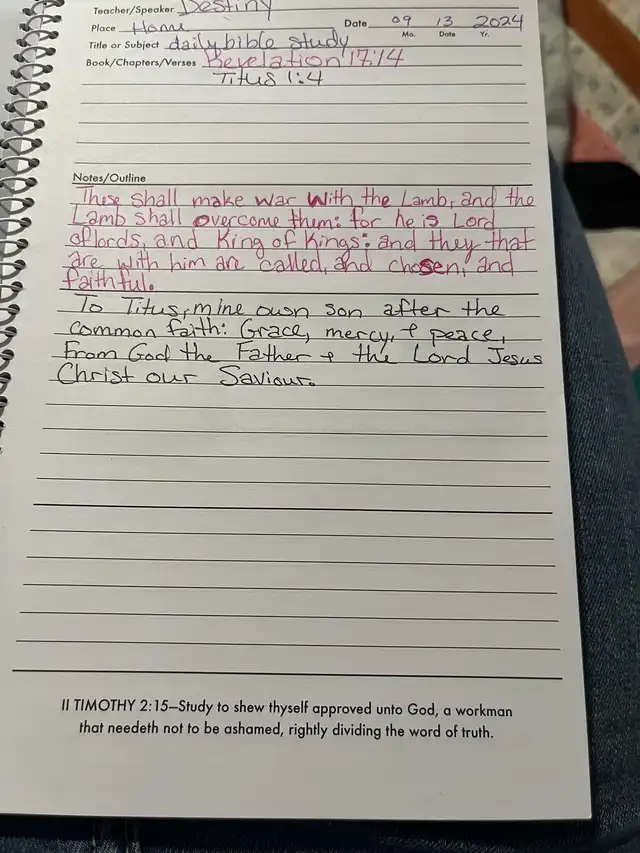 Teacher/Speaker Destiny
Place Home Date 09 13 2024
Mo. Date Yr.
Title or Subject daily bible study
Book/Chapters/Verses Revelation 17:14
Titus 1:4
Notes/Outline
These shall make war with the Lamb, and the
Lamb shall overcome them: for he is Lord
of lords, and King of Kings: and they that
are with him are called, and chosen, and
faithful.
To Titus, mine own son after the
common faith: Grace, mercy, + peace,
From God the Father + the Lord Jesus
Christ our Saviour.
II TIMOTHY 2:15—Study to shew thyself approved unto God, a workman
that needeth not to be ashamed, rightly dividing the word of truth.